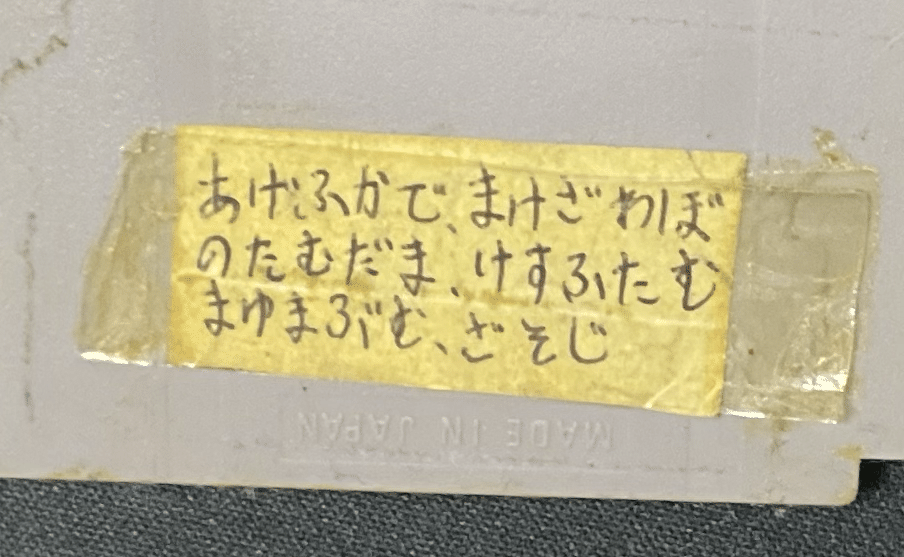 あげふかで、まけざわぼ
のたむだま、けすふたむ
まゆまぶむ、ざそじ
MADE IN JAPAN